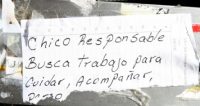 Chico Responsable
Busca trabajo para
Cuidar, Acompañar,